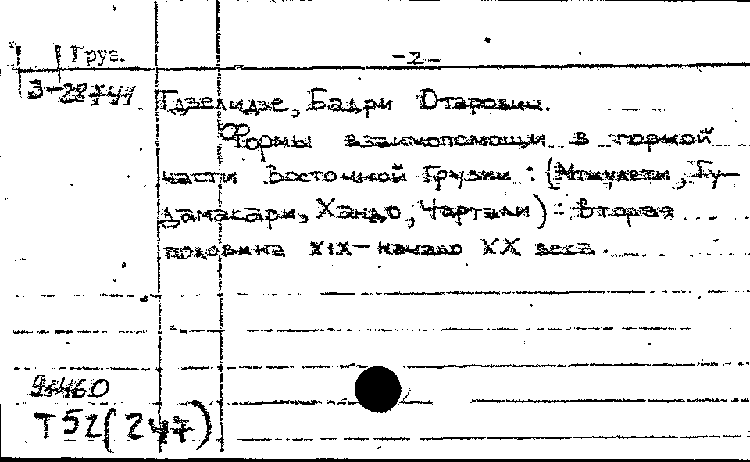 Груз.
-2-
Гдзелидзе, Бадри Отарович.
Формы взаимопомощи в горной
части Восточной Грузии : (Мтиулети, Гу-
дамакари, Хандо, Чартали) : вторая
половина XIX - начало XX века.
Т52(247)